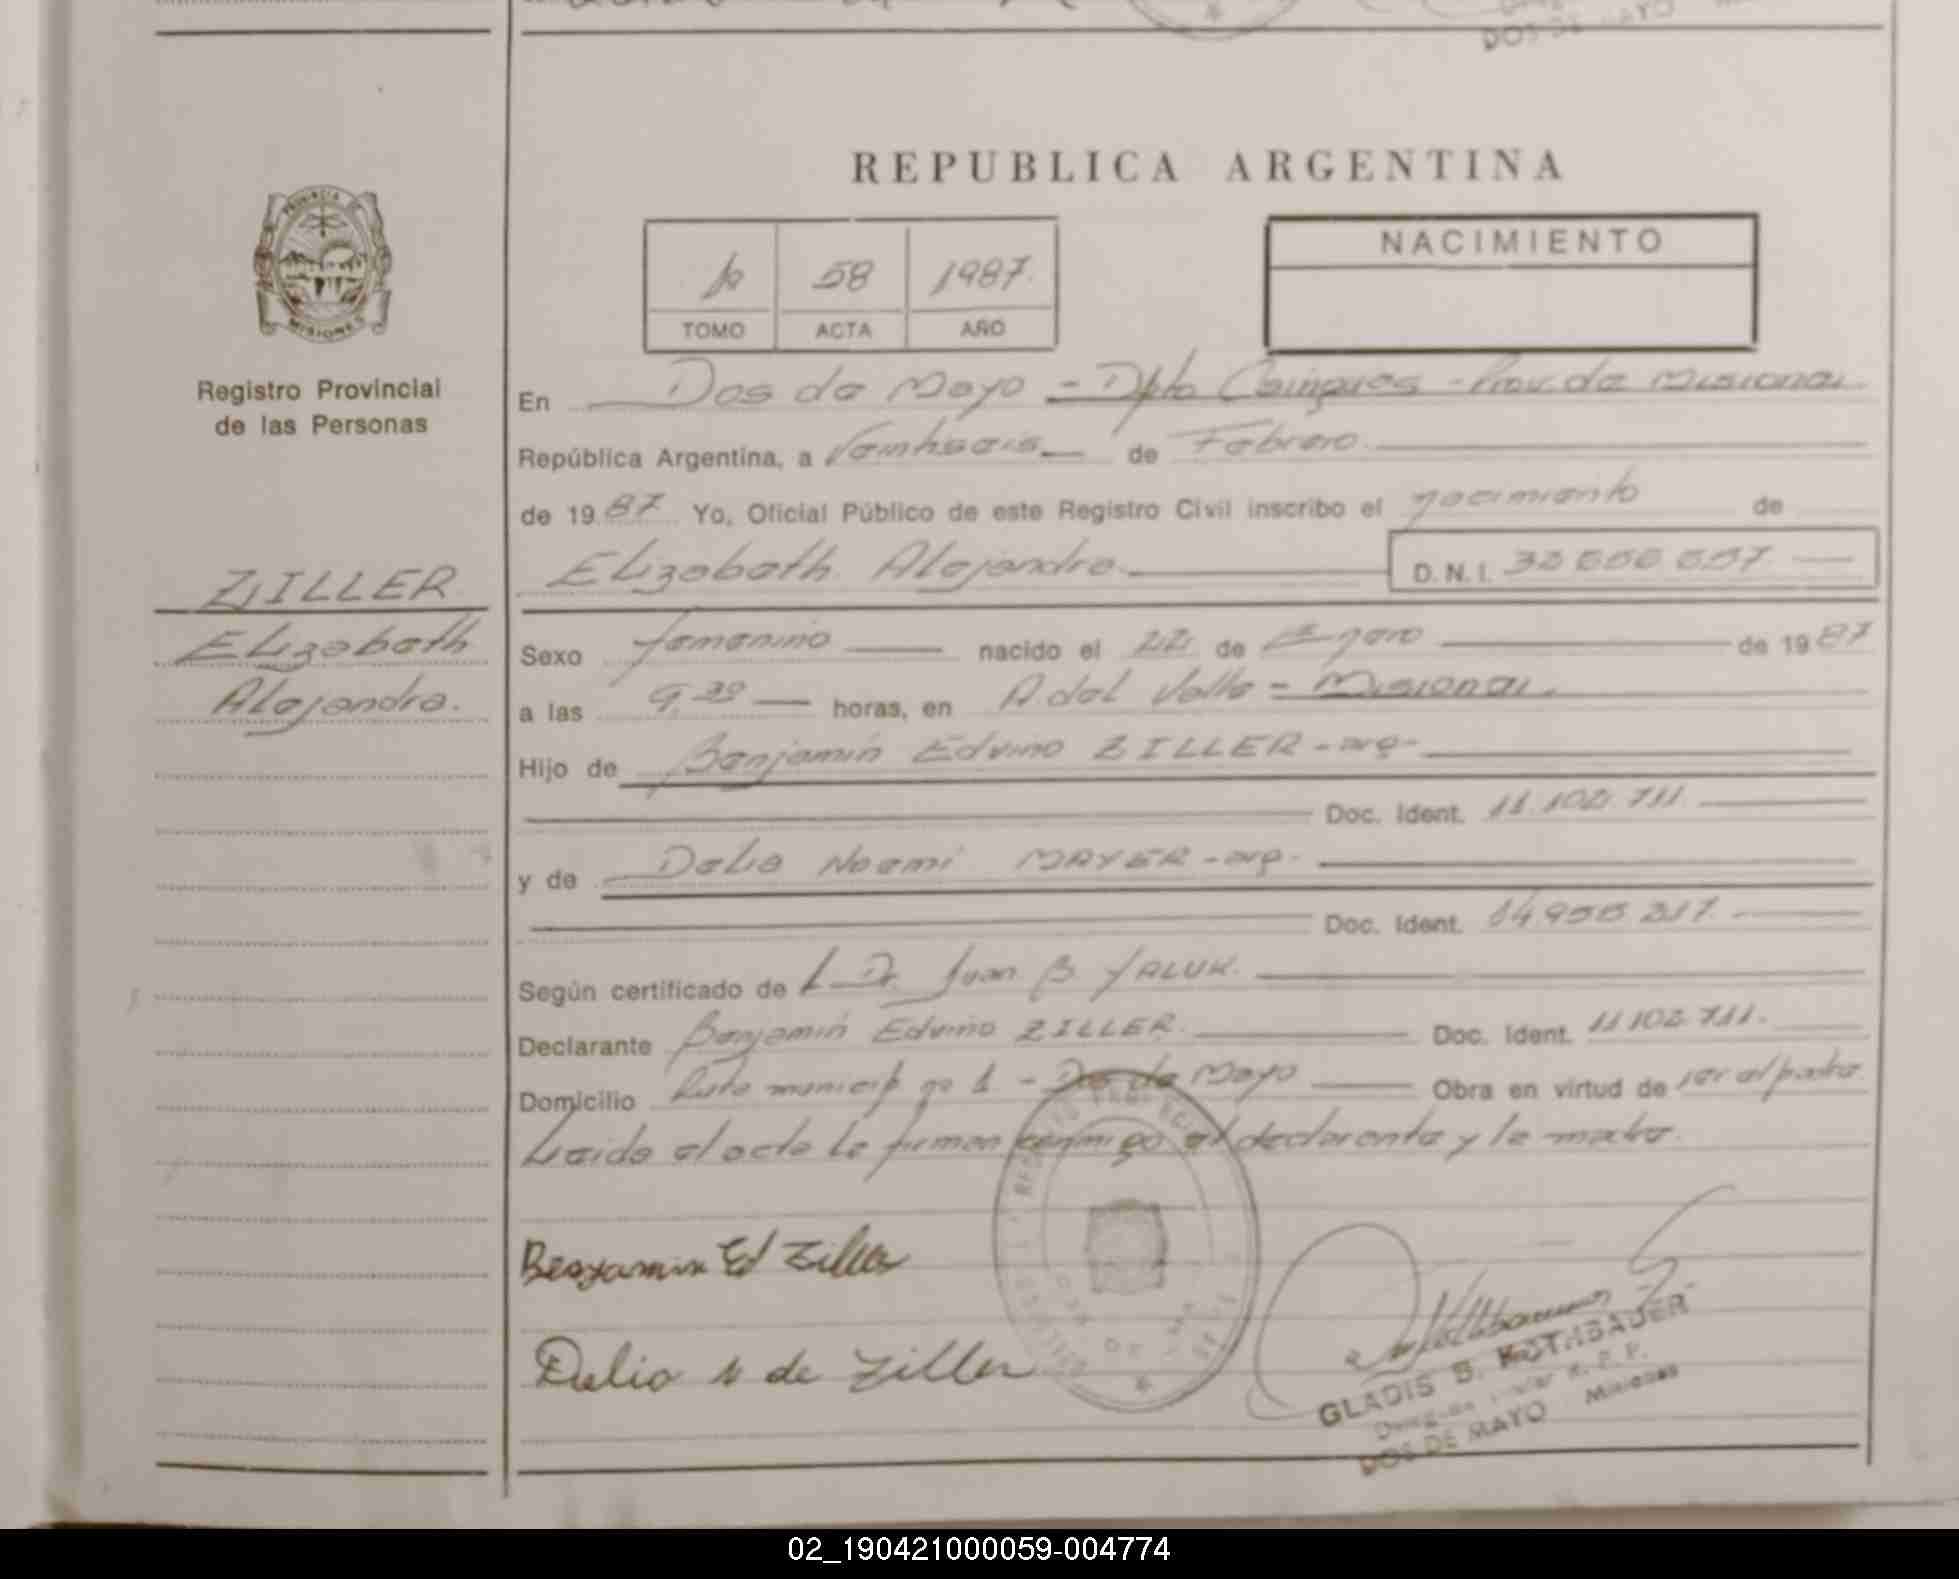 REPUBLICA ARGENTINA
PROVINCIA DE
MISIONES
Registro Provincial
de las Personas
58 1987.
TOMO ACTA AÑO
NACIMIENTO
En Dos de Mayo - Dpto Cainguas - Prov. de Misiones
República Argentina, a Veintiseis de Febrero
de 19 87 Yo, Oficial Público de este Registro Civil inscribo el nacimiento de
Elizabeth Alejandra D. N. I.
ZILLER
Elizabeth
Alejandra.
Sexo femenino nacido el 22 de Enero de 19 87
a las 9,30 horas, en A. del Valle - Misiones.
Hijo de Benjamín Edvino ZILLER - arg -
Doc. Ident. 11.102.711.
y de Delia Noemí MAYER - arg -
Doc. Ident.
Según certificado de Dr. Juan B. YALUK.
Declarante Benjamín Edvino ZILLER. Doc. Ident. 11 102 711.
Domicilio Ruta municip no 1 - Dos de Mayo Obra en virtud de ser el padre
Leida el acta la firman conmigo el declarante y la madre.
Benjamin Ed Ziller
Delia N de Ziller
GLADIS B. ROTHBAUER
DOS DE MAYO Misiones
02_190421000059-004774